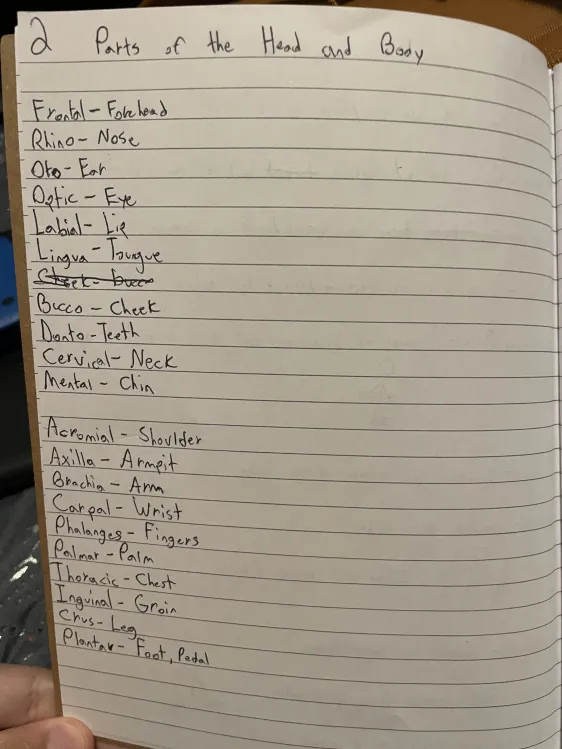 2 Parts of the Head and Body
Frontal - Forehead
Rhino - Nose
Oto - Ear
Optic - Eye
Labial - Lip
Lingua - Toungue
Cheek - Bucco
Bucco - Cheek
Donto - Teeth
Cervical - Neck
Mental - Chin
Acromial - Shoulder
Axilla - Armpit
Brachia - Arm
Carpal - Wrist
Phalanges - Fingers
Palmar - Palm
Thoracic - Chest
Inguinal - Groin
Crus - Leg
Plantar - Foot, Pedal